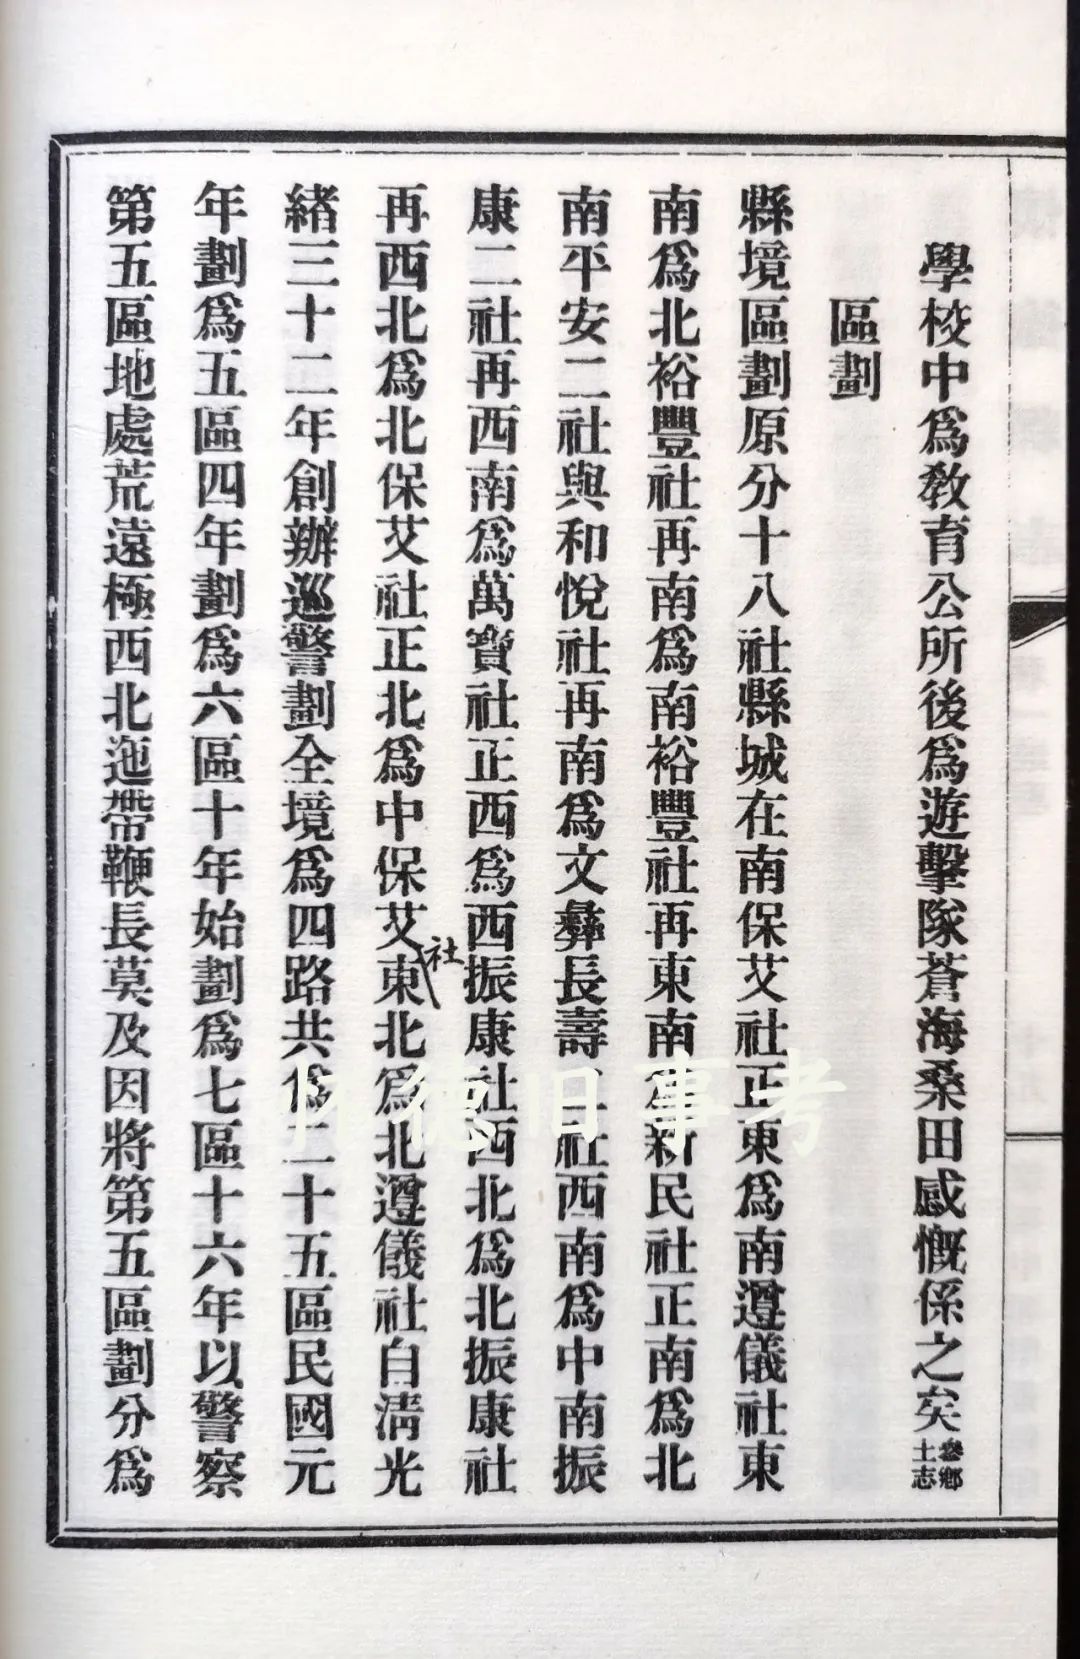 學校中爲教育公所後爲遊擊隊蒼海桑田感慨係之矣參鄉土志
區劃
縣境區劃原分十八社縣城在南保艾社正東爲南遵儀社東
南爲北裕豐社再南爲南裕豐社再東南爲新民社正南爲北
南平安二社與和悅社再南爲文彝長壽二社西南爲中南振
康二社再西南爲萬寶社正西爲西振康社西北爲北振康社
再西北爲北保艾社正北爲中保艾社東北爲北遵儀社自淸光
緖三十二年創辦巡警劃全境爲四路共爲二十五區民國元
年劃爲五區四年劃爲六區十年始劃爲七區十六年以警察
第五區地處荒遠極西北迤帶鞭長莫及因將第五區劃分爲
怀德旧事考